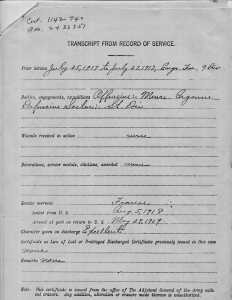 Cert. 1142
TRANSCRIPT FROM RECORD OF SERVICE.
Prior service July 25, 1917 to July 27, 1917,
Battles, engagements, expeditions Offensive: Meuse Argonne
Defensive Sector: St. Die
Wounds received in action none
Decorations, service medals, citations, awarded none
Foreign service: France
Sailed from U. S. Aug. 5, 1918
Arrived at port on return to U. S. May 28, 1919
Character given on discharge Excellent
Certificate in lieu of Lost or Destroyed Discharged Certificate previously issued in this case
Remarks None
Note: This certificate is issued from the office of The Adjutant General of the Army without erasure. Any addition, alteration or erasure made hereon is unauthorized.